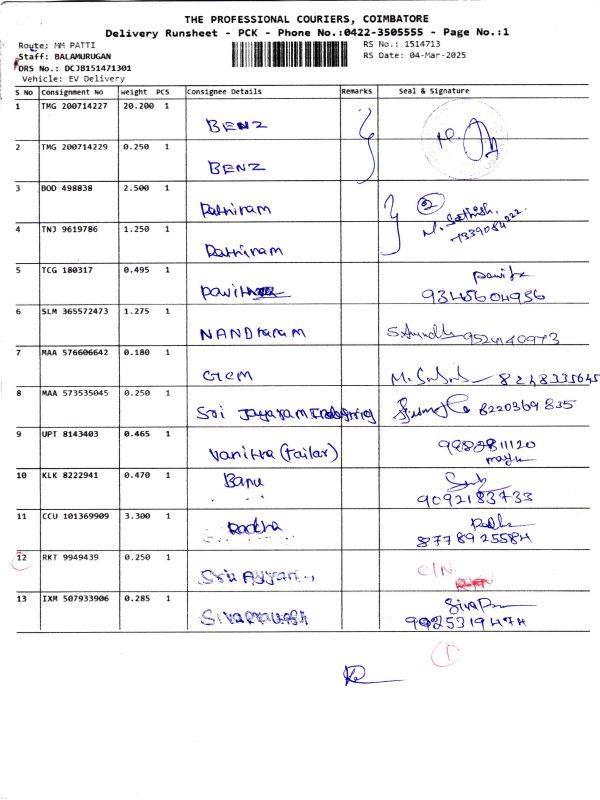 THE PROFESSIONAL COURIERS, COIMBATORE
Delivery Runsheet - PCK - Phone No.:0422-3505555 - Page No.:1
Route; MM PATTI RS No.: 1514713
Staff: BALAMURUGAN RS Date: 04-Mar-2025
DRS No.: DCJB151471301
Vehicle: EV Delivery
S No Consignment No Weight PCS Consignee Details Remarks Seal & Signature
1 TMG 200714227 20.200 1 BENZ
2 TMG 200714229 0.250 1 BENZ
3 BOD 498838 2.500 1 Pathiram 2
M. Sathish.
4 TNJ 9619786 1.250 1 Pathiram
5 TCG 180317 0.495 1 Pavithra
9345604956
6 SLM 365572473 1.275 1 NANDharam 9524140973
7 MAA 576606642 0.180 1 Gem 8248335645
8 MAA 573535045 0.250 1 Sri Jayaram 8220369835
9 UPT 8143403 0.465 1 Vanitha (Tailar)
10 KLK 8222941 0.470 1 Banu
9092183733
11 CCU 101369909 3.300 1 Radha
8778925584
12 RKT 9949439 0.250 1 Sri Ayyan C/N
13 IXM 507933906 0.285 1
9025319474
1